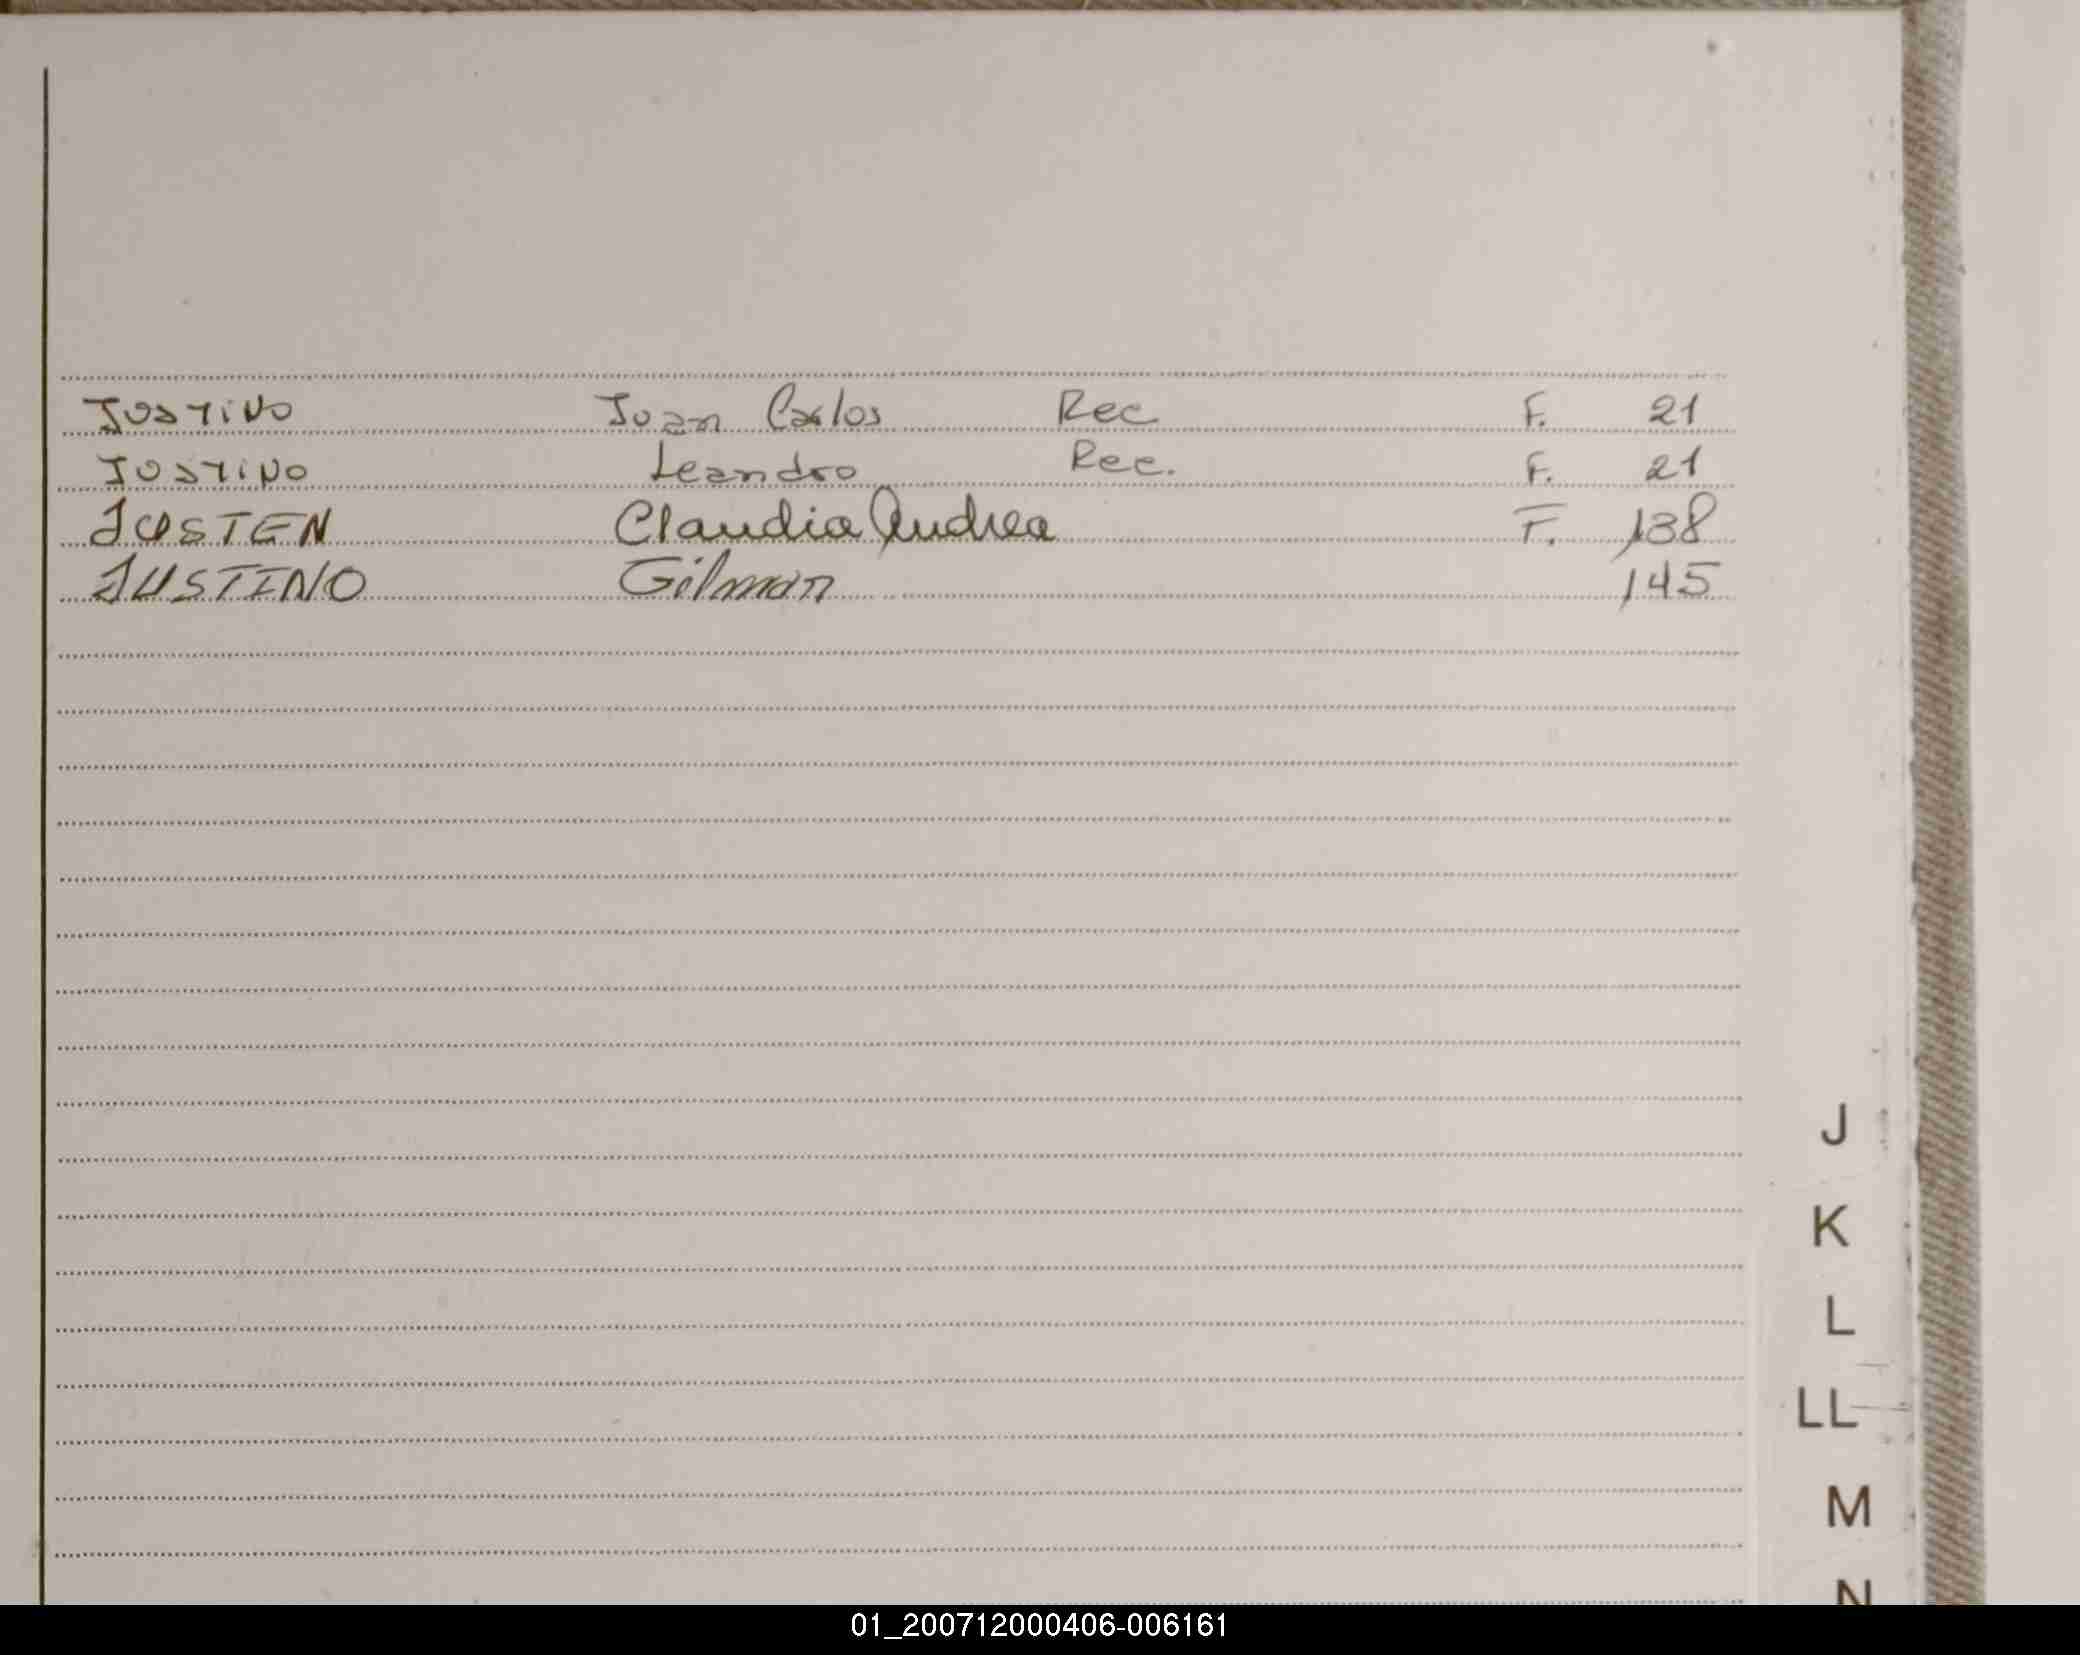 JUSTINO Juan Carlos Rec F. 21
JUSTINO Leandro Rec. F. 21
JUSTEN Claudia Andrea F. 138
JUSTINO Gilman 145
J
K
L
LL
M
N
01_200712000406-006161